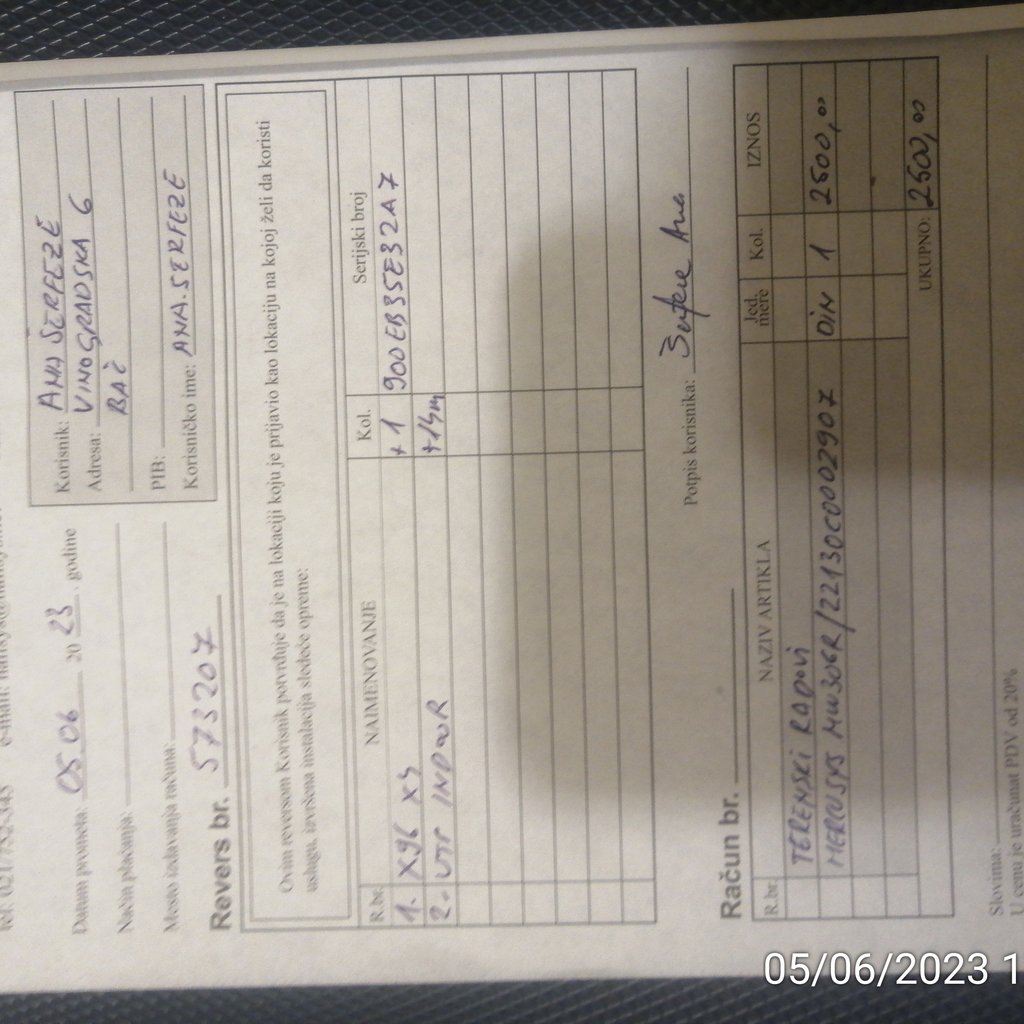 Tel: 021/752-345 e-mail:
Datum prometa: 05.06 2023. godine
Način plaćanja:
Mesto izdavanja računa:
Korisnik: ANA ŠERFEZE
Adresa: VINOGRADSKA 6
BAČ
PIB:
Korisničko ime: ANA.SERFEZE
Revers br. 573207
Ovim reversom Korisnik potvrđuje da je na lokaciji koju je prijavio kao lokaciju na kojoj želi da koristi
uslugu, izvršena instalacija sledeće opreme:
R.br. NAIMENOVANJE Kol. Serijski broj
1. X96 X4 +1 900EB35E32A7
2. UTP INDOOR +15m
Potpis korisnika:
Račun br.
R.br. NAZIV ARTIKLA Jed. mere Kol. IZNOS
TERENSKI RADOVI
MERCUSYS MW306R/22130C0002907 DIN 1 2500,00
UKUPNO: 2500,00
Slovima:
U cenu je uračunat PDV od 20%
05/06/2023 1